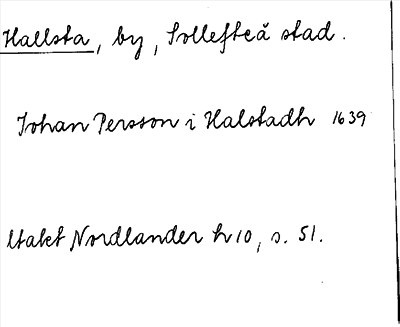 Hallsta, by, Sollefteå stad.
Johan Persson i Halstadh 1639
Utakt Nordlander h 10, s. 51.